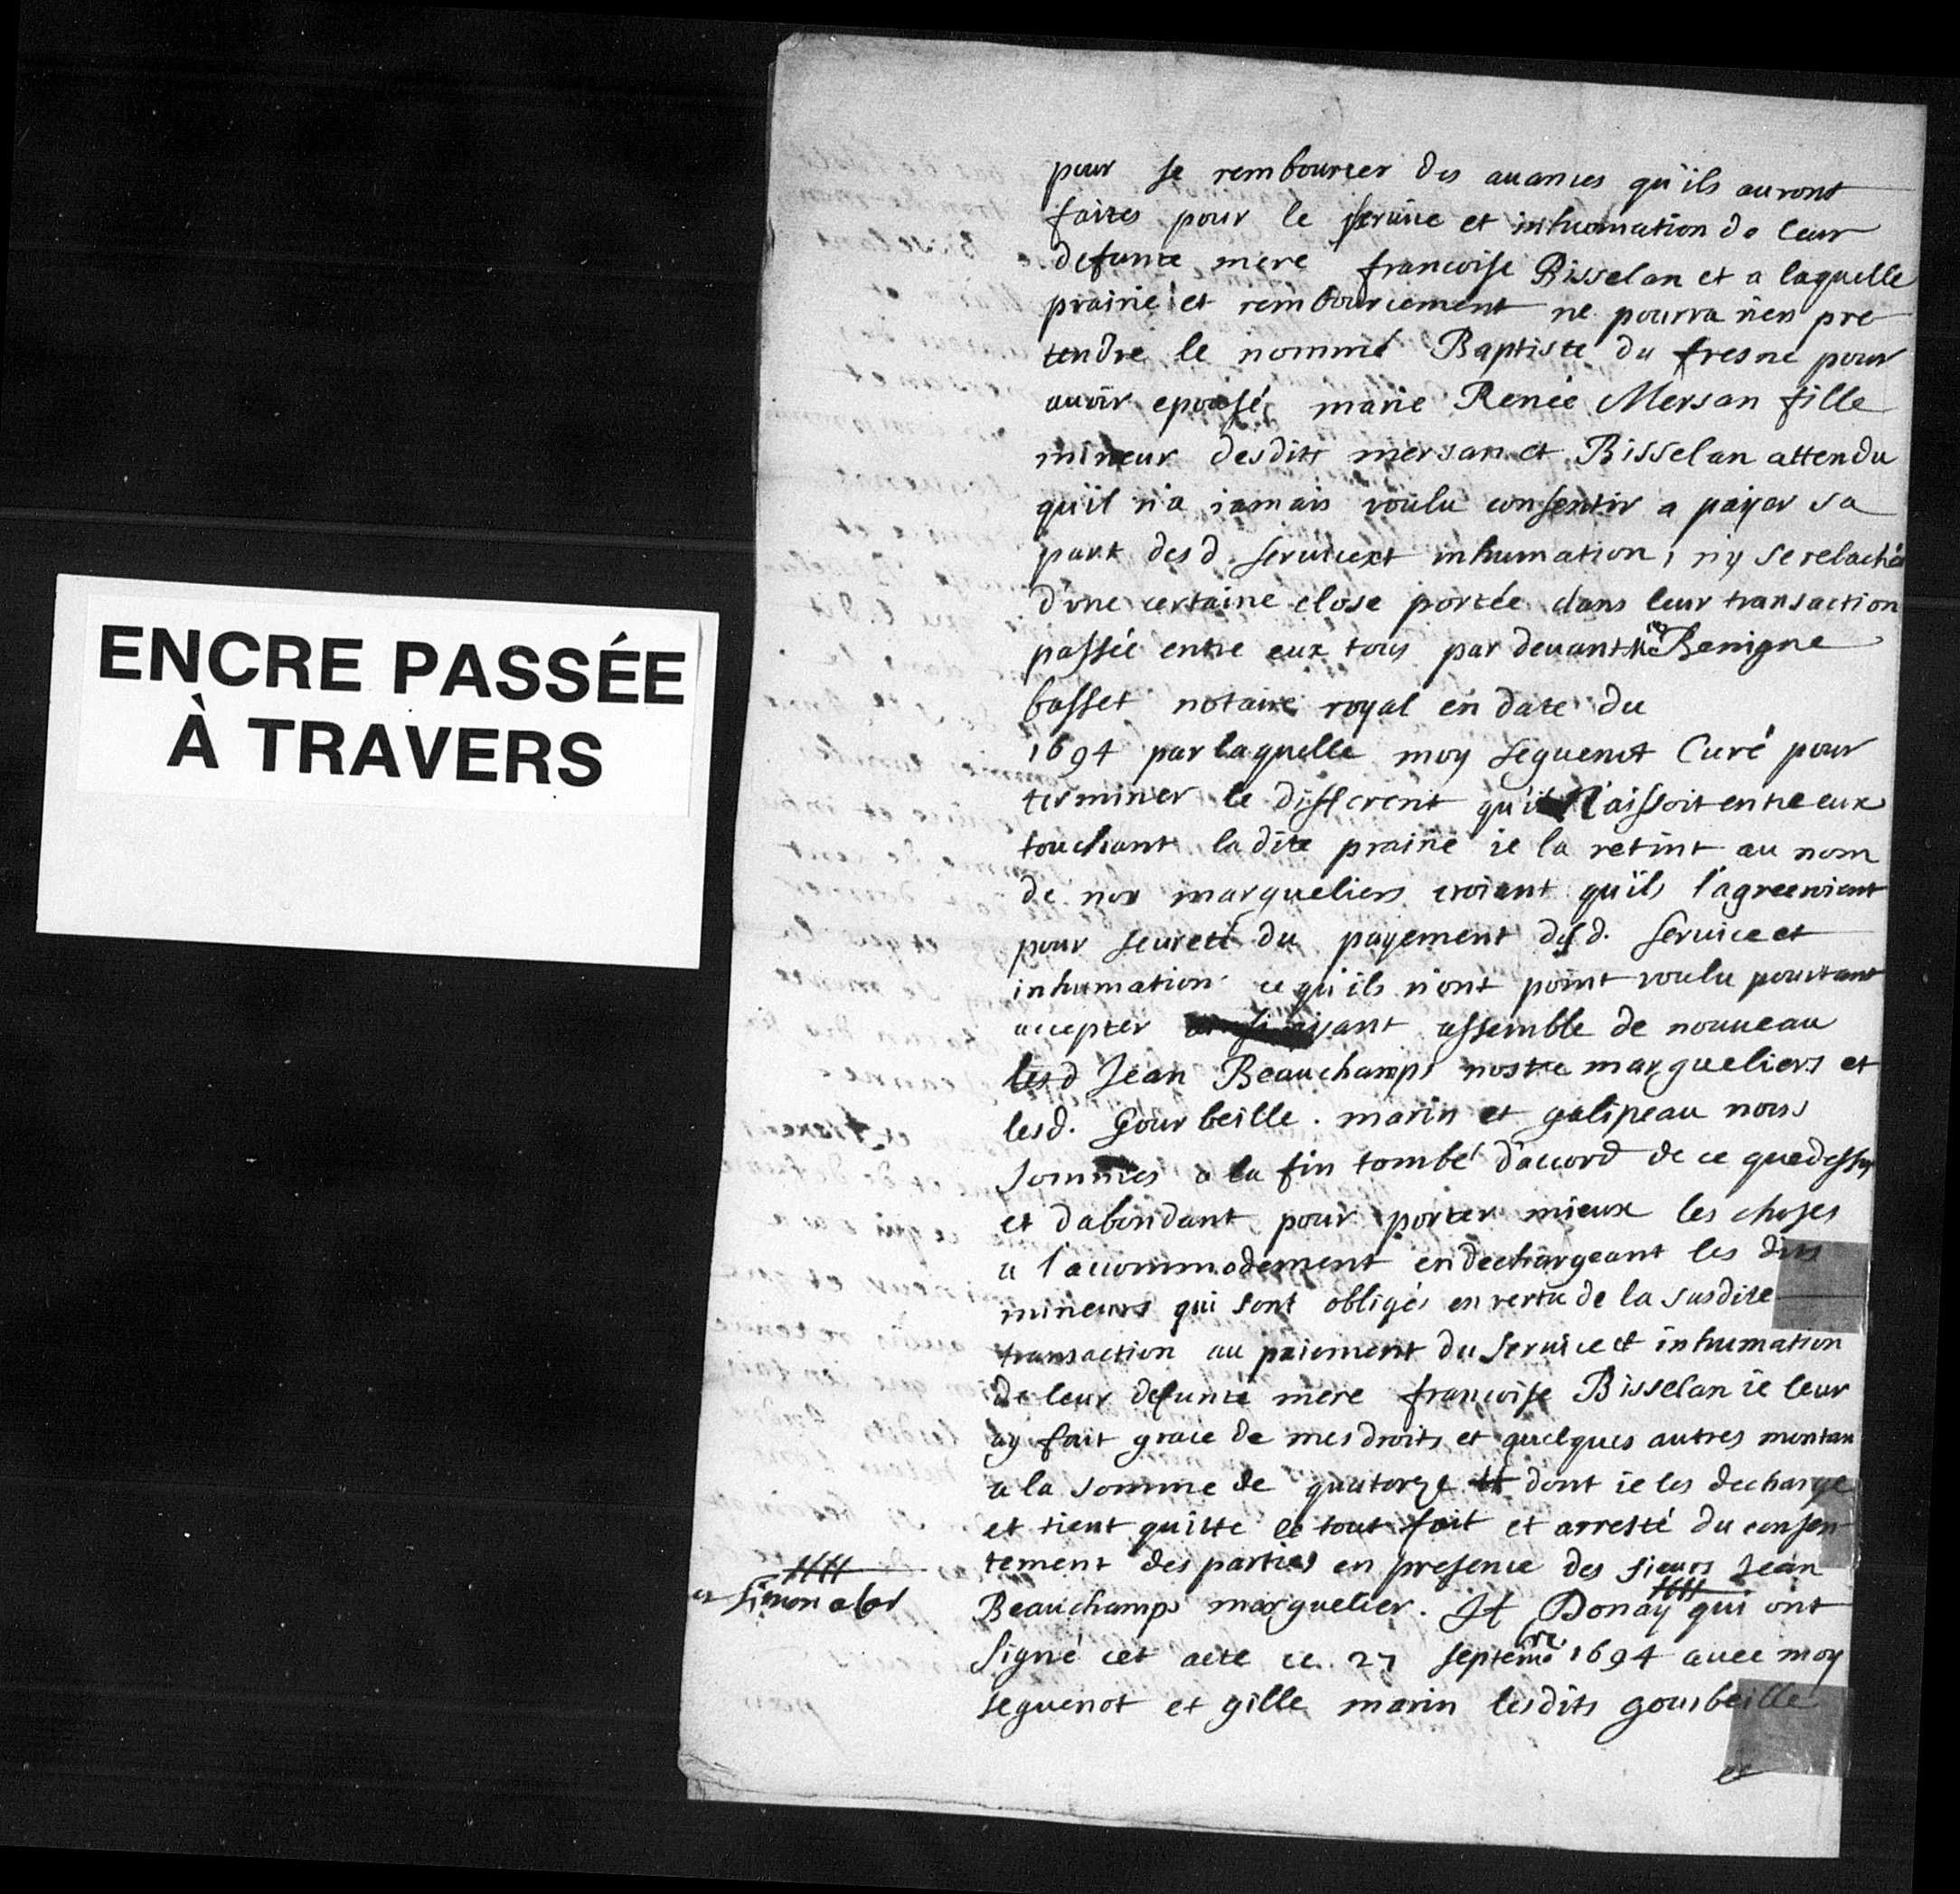 ENCRE PASSÉE
À TRAVERS
pour se rembourcer des auances qu'ils auront
faites pour le seruice et inhumation de leur
defunte mere francoise Bisselan et a laquelle
prairie et rembourcement ne pourra rien pre
tendre le nommé Baptiste du fresne pour
auoir epousé marie Renée Mersan fille
mineur desdits mersan et Bisselan attendu
qu'il n'a iamais voulu consentir a payer sa
part des d. seruice et inhumation, ny se relaché
d'une certaine close portée dans leur transaction
passée entre eux tous par deuant Me Benigne
basset notaire royal en date du
1694 par laquelle moy seguenot Curé pour
terminer le different qui naissoit entre eux
touchant ladite prairie ie la retint au nom
de nos margueliers croiant qu'ils l'agreeroient
pour seureté du payement desd. seruice et
inhumation ce qu'ils n'ont point voulu pourtant
accepter ayant assemble de nouueau
lesd Jean Beauchamps nostre margueliers et
lesd. Gourbeille. marin et galipeau nous
sommes a la fin tombé d'accord de ce que dessus
et dabondant pour porter mieux les choses
a l'accommodement en dechargeant les dits
mineurs qui sont obligés en vertu de la susdite
transaction au paiement du seruice et inhumation
de leur defunte mere francoise Bisselan ie leur
ay fait grace de mes droits et quelques autres montan
a la somme de quatorze ₶ dont ie les decharge
et tient quitte le tout fait et arresté du consen
tement des parties en presence des sieurs Jean
Beauchamps marguelier. Et Donay qui ont
et Simon alar
signé cet acte ce 27 septembre 1694 auec moy
seguenot et gille marin lesdits gourbeille
et